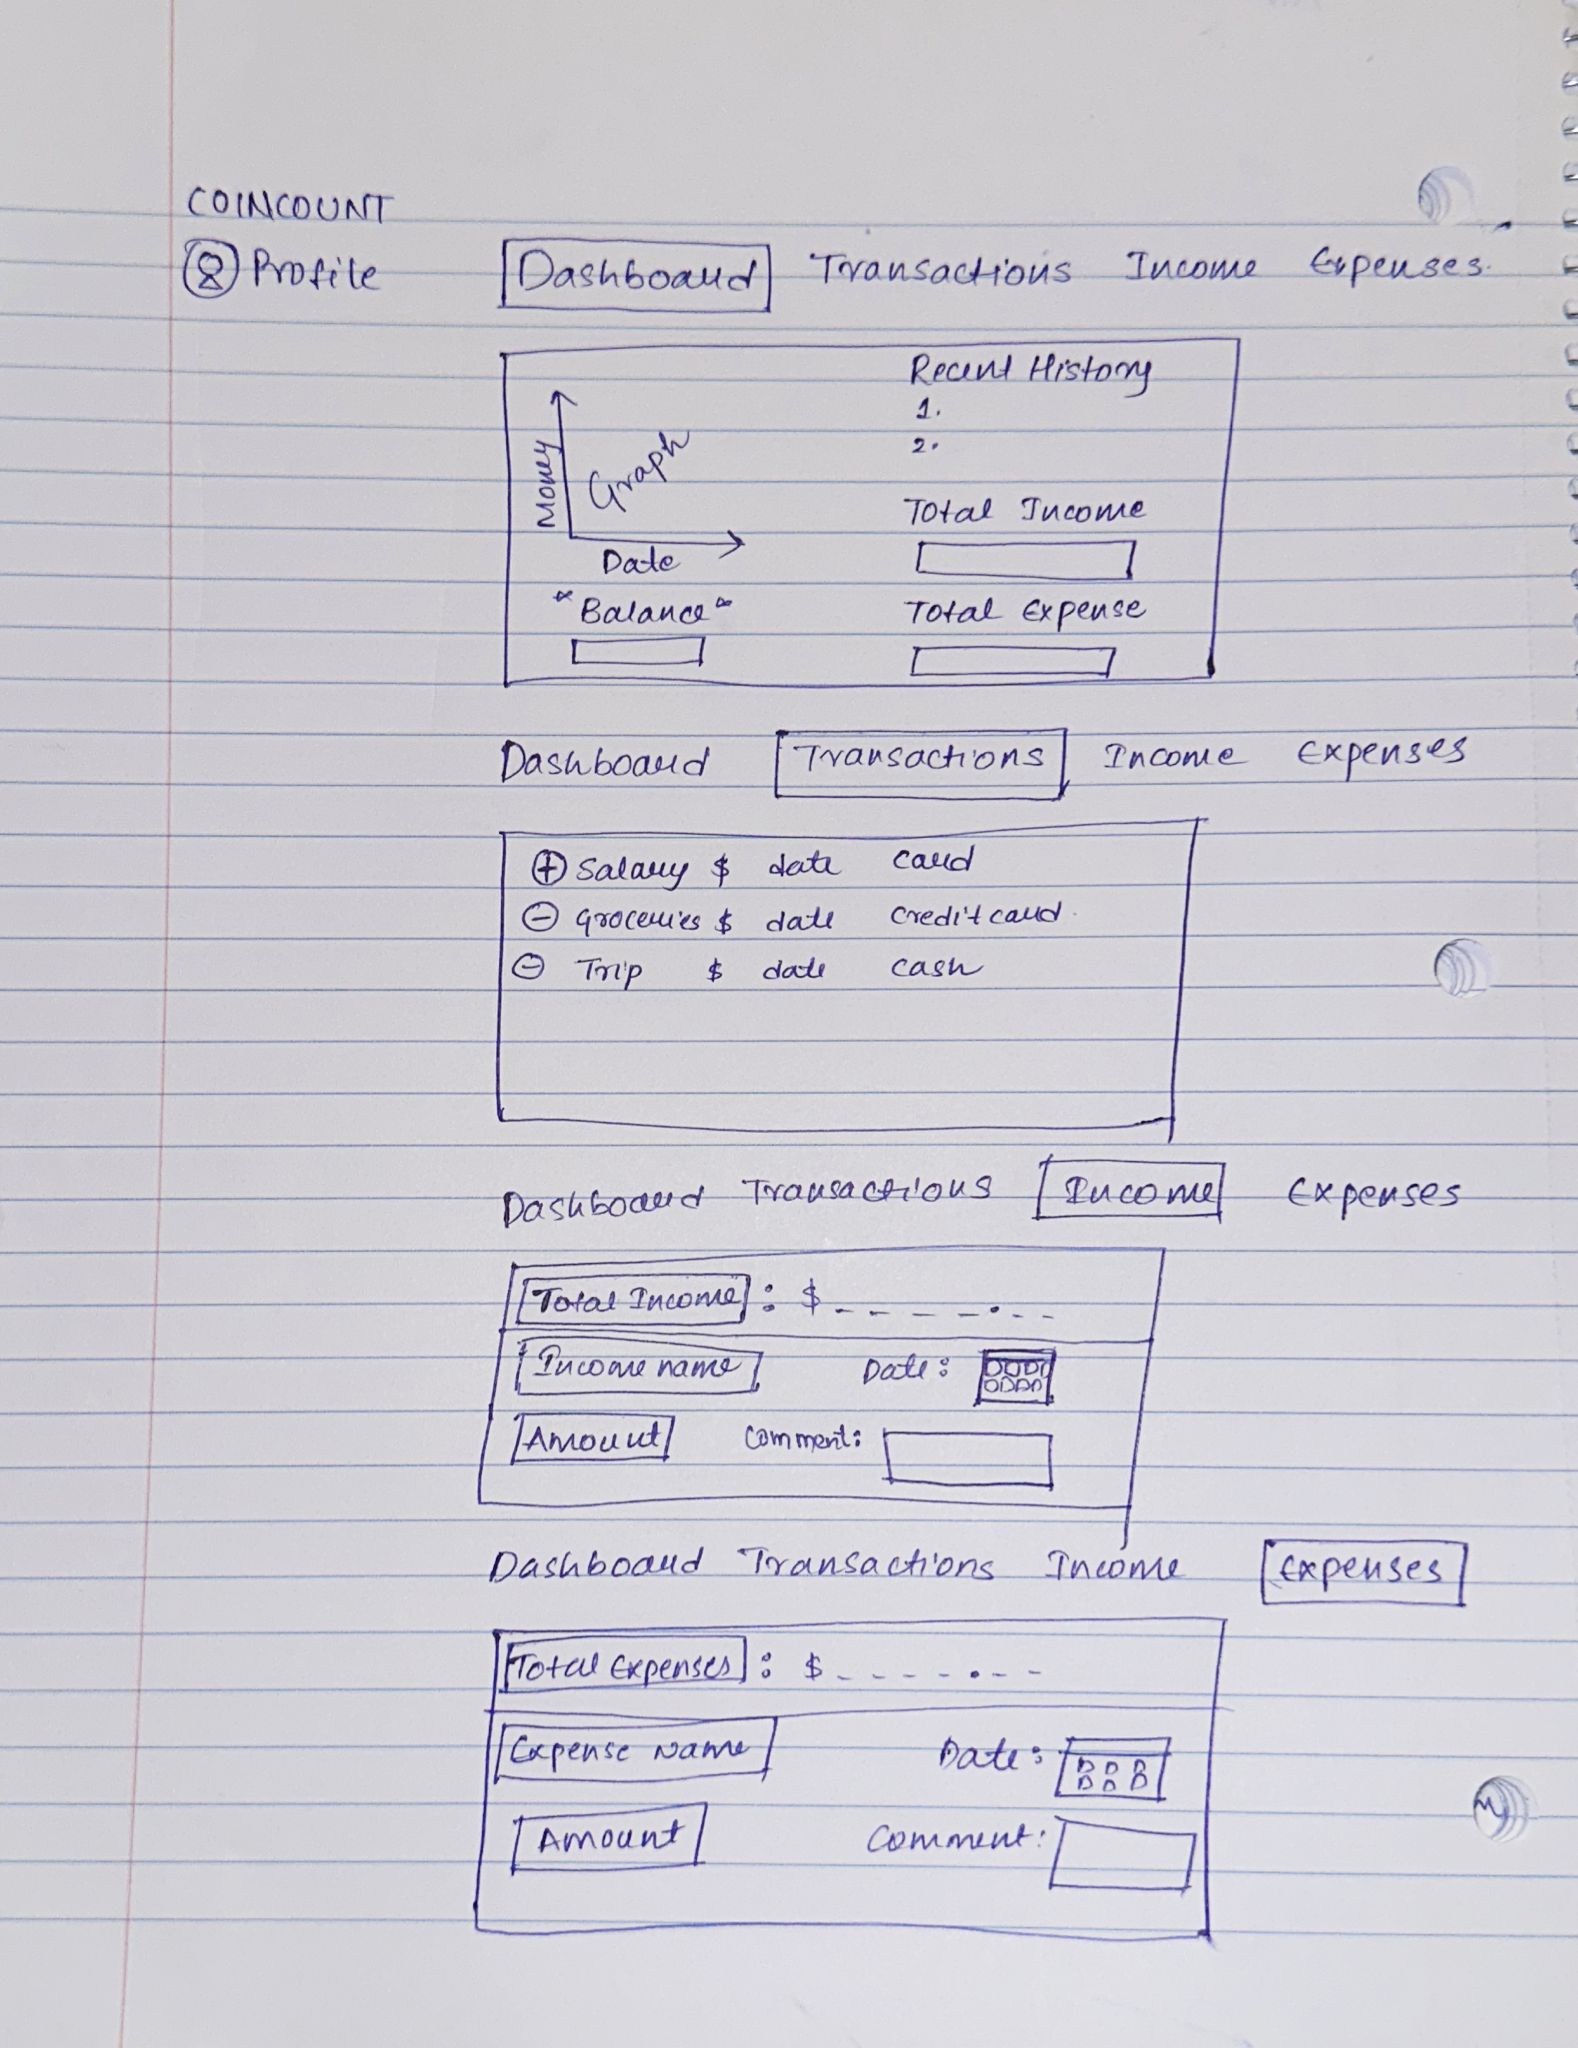 COINCOUNT
Profile Dashboard Transactions Income Expenses.
Recent History
1.
2.
Money
Graph
Date
Total Income
"Balance"
Total Expense
Dashboard Transactions Income Expenses
+ Salary $ date card
- Groceries $ date credit card.
- Trip $ date cash
Dashboard Transactions Income Expenses
Total Income : $ _ _ _ _ . _ _
Income name Date:
Amount Comment:
Dashboard Transactions Income Expenses
Total Expenses : $ _ _ _ _ . _ _
Expense Name Date:
Amount Comment: